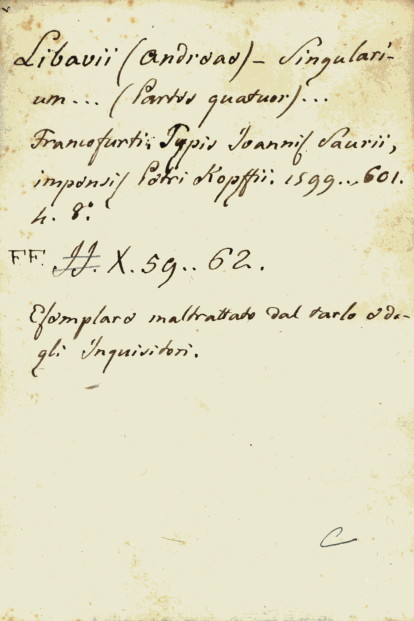 Libavii (Andreae) – Singulari-
um... (Partes quatuor)...
Francofurti: Typis Joannis Saurii,
impensis Petri Kopffii. 1599..601.
4. 8.º
FF. JJ. X. 59.. 62.
Esemplare maltrattato dal tarlo e da-
gli Inquisitori.
C